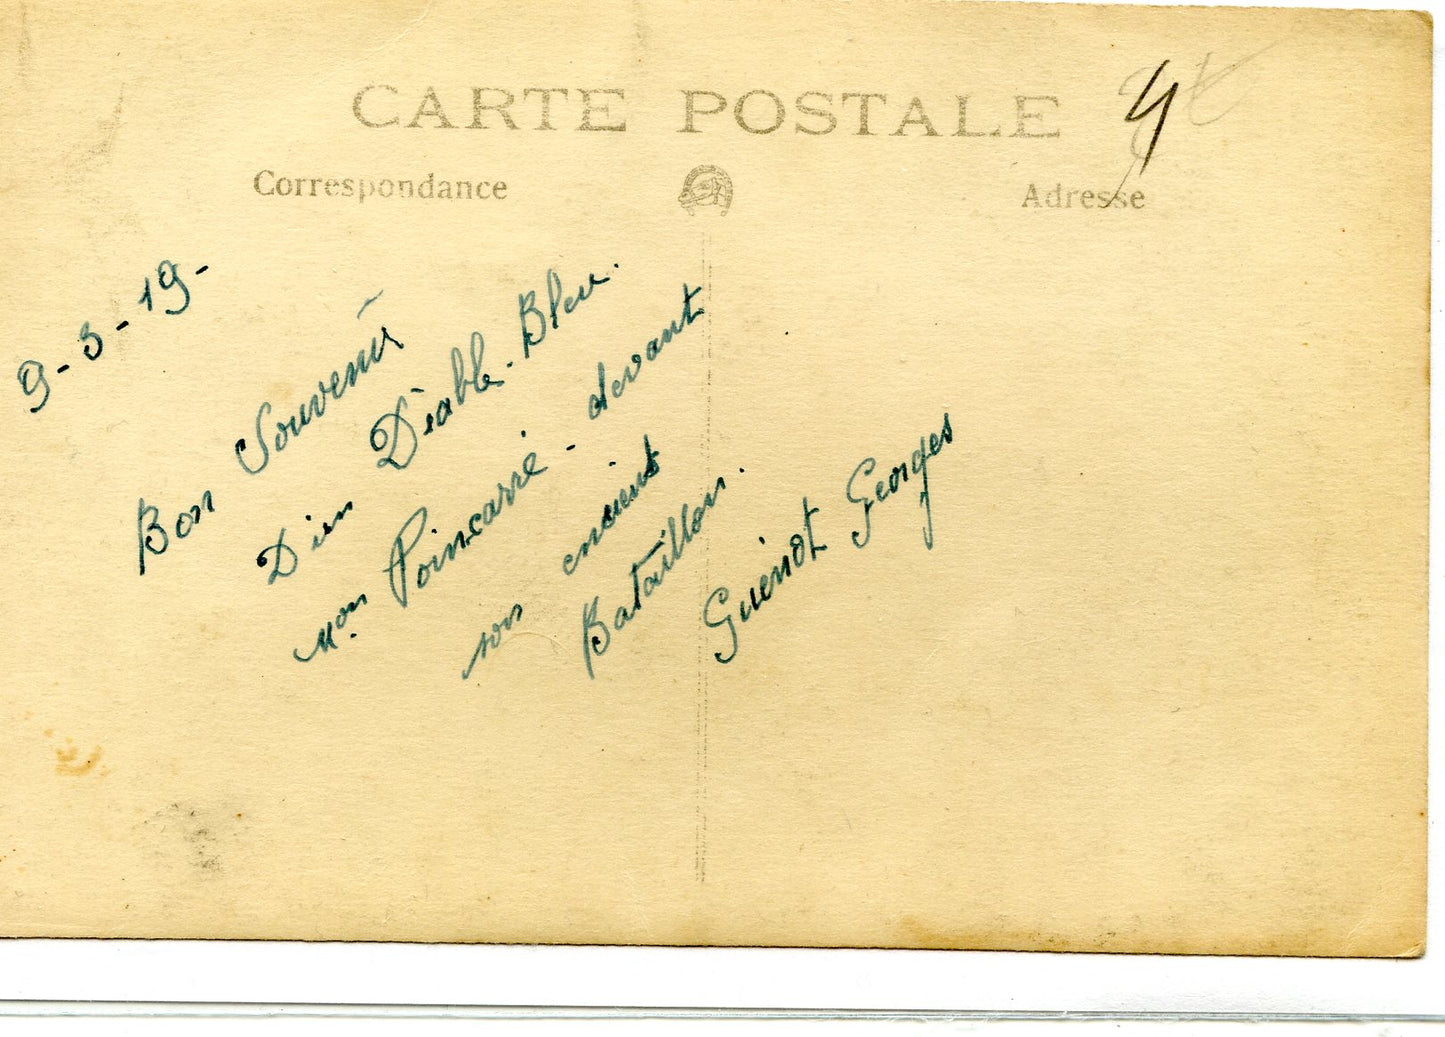 CARTE POSTALE
Correspondance
Adresse
9-3-19-
Bon Souvenir
D'un Diable-Bleu.
Mon Poincarré - devant
son anciens
Bataillon.
Guenot Georges